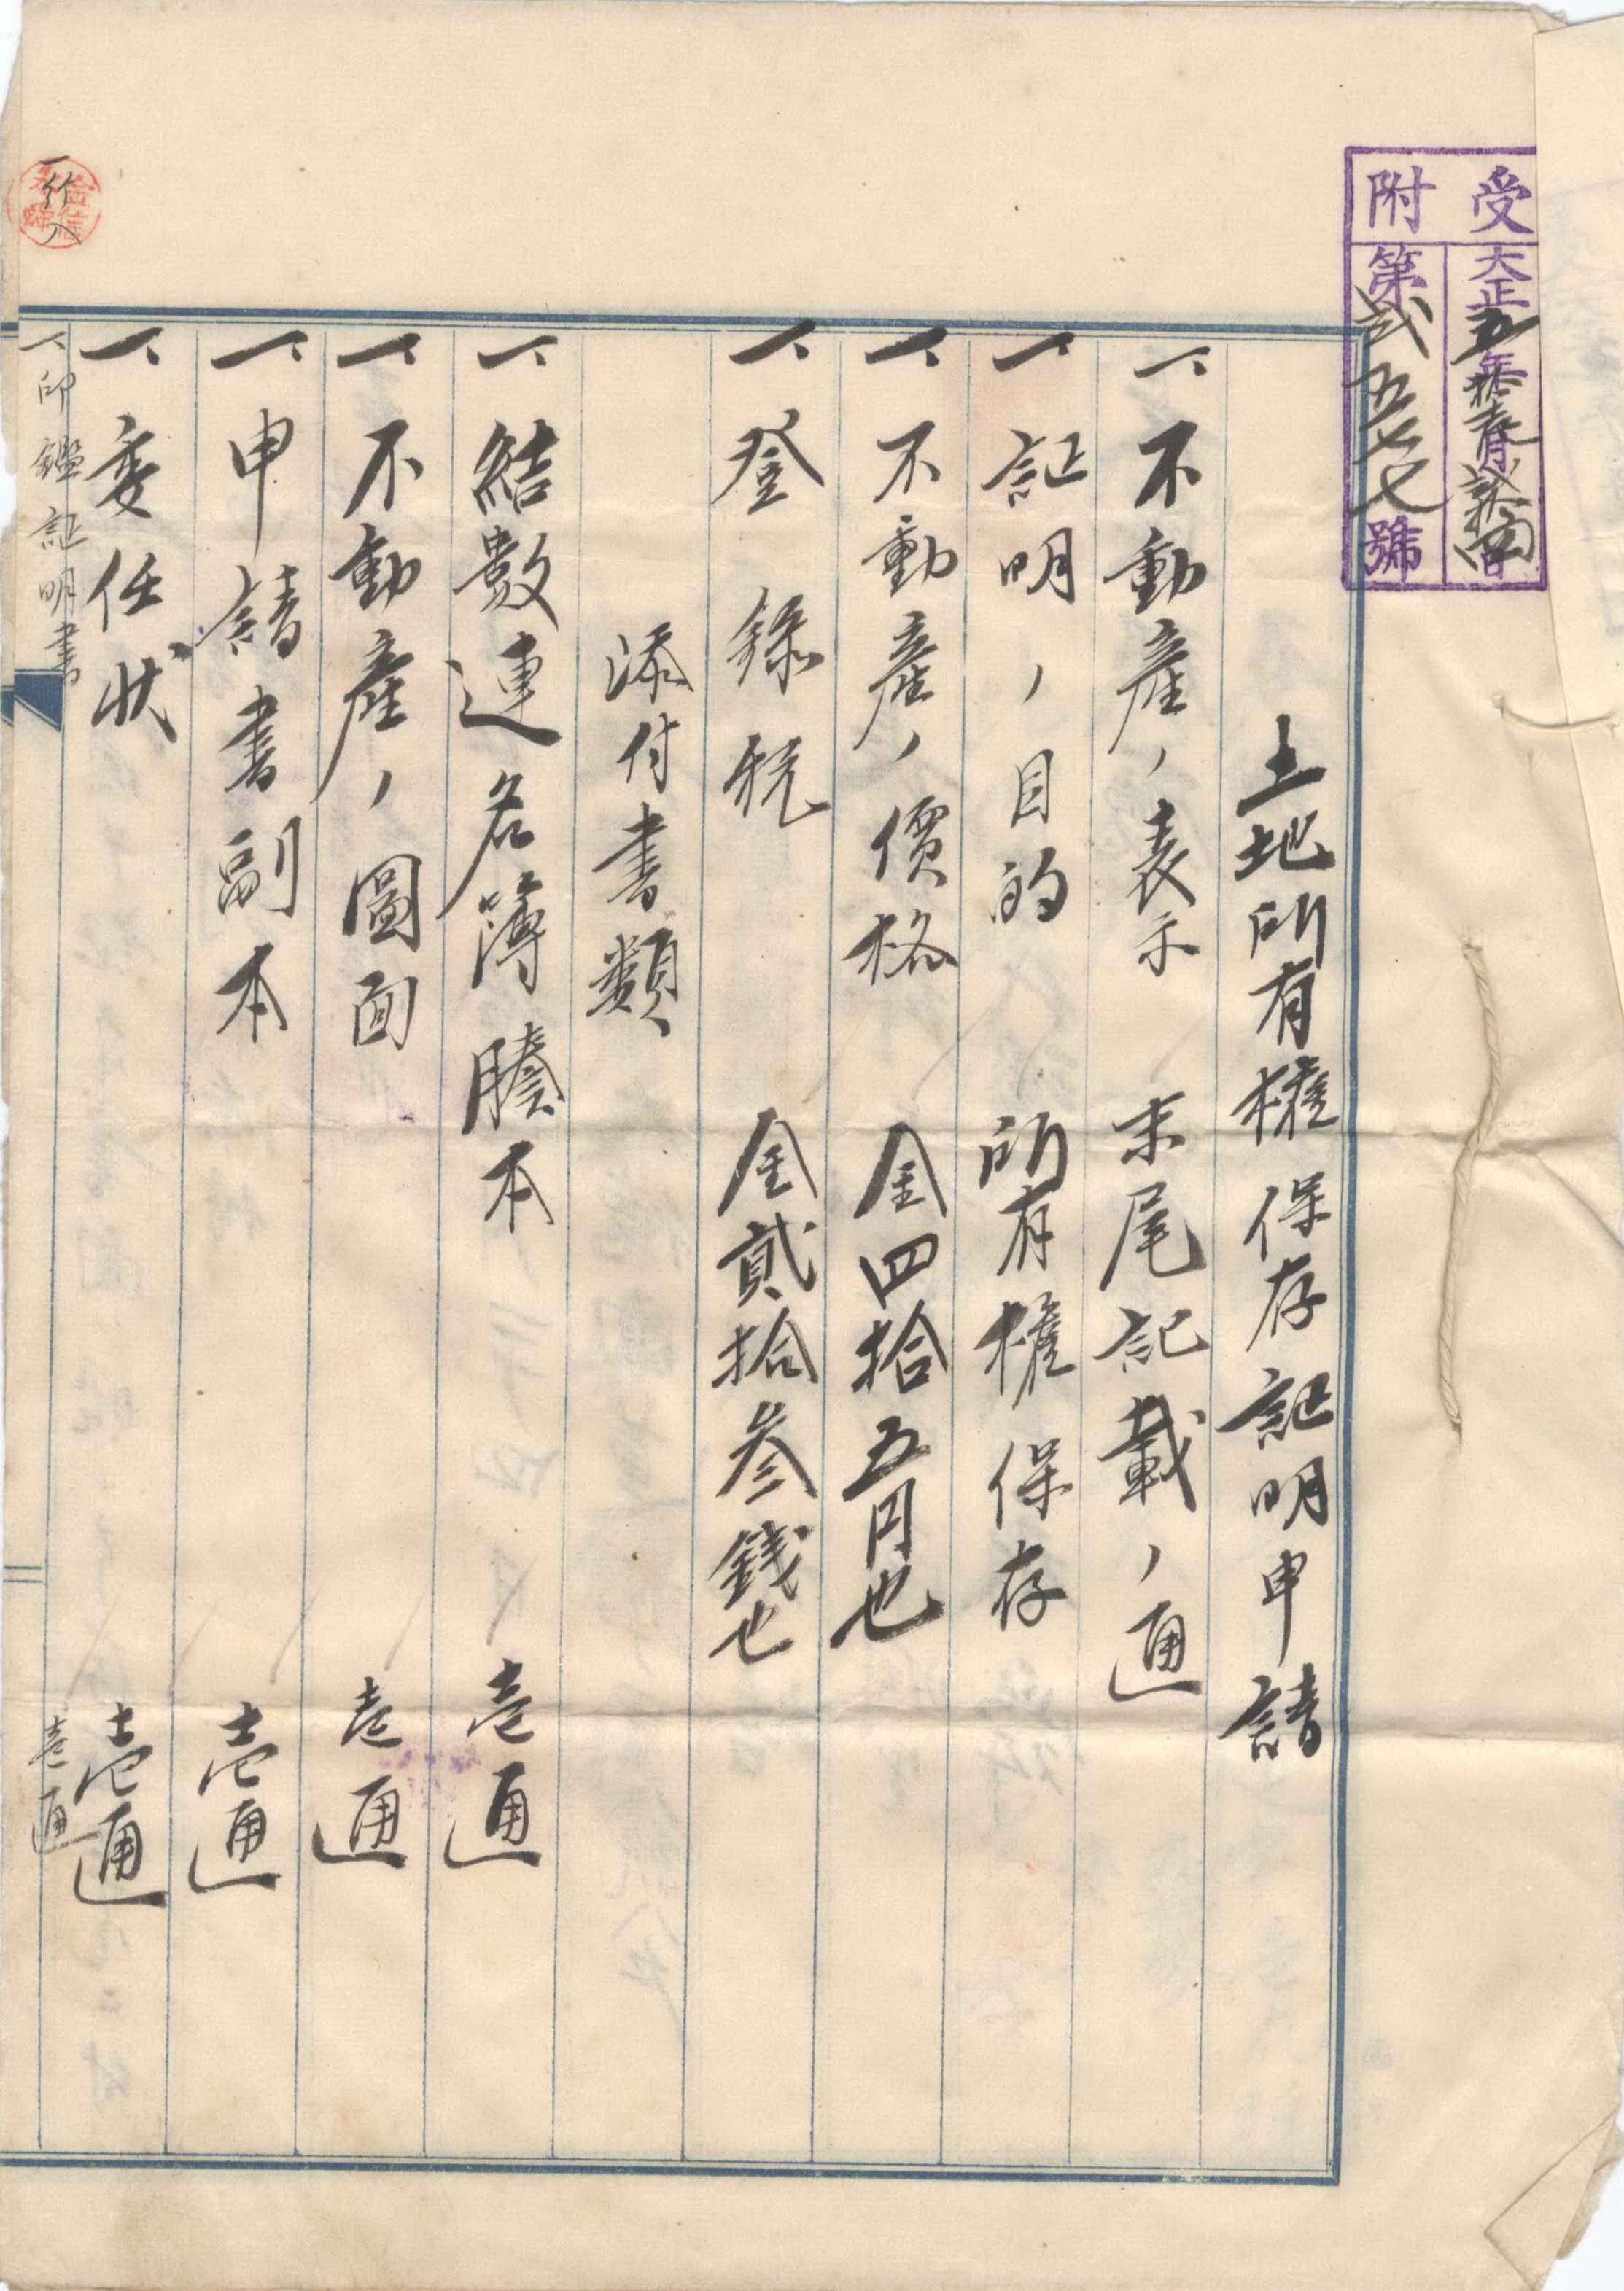 受附
大正五年
第弍五七七號
土地所有權保存証明申請
一、不動産ノ表示 末尾記載ノ通
一、証明ノ目的 所有權保存
一、不動産ノ價格 金四拾五円也
一、登錄税 金貳拾参錢也
添付書類
一、結數連名簿謄本 壱通
一、不動産ノ圖面 壱通
一、申請書副本 壱通
一、委任状 壱通
一、印鑑証明書 壱通
一行入